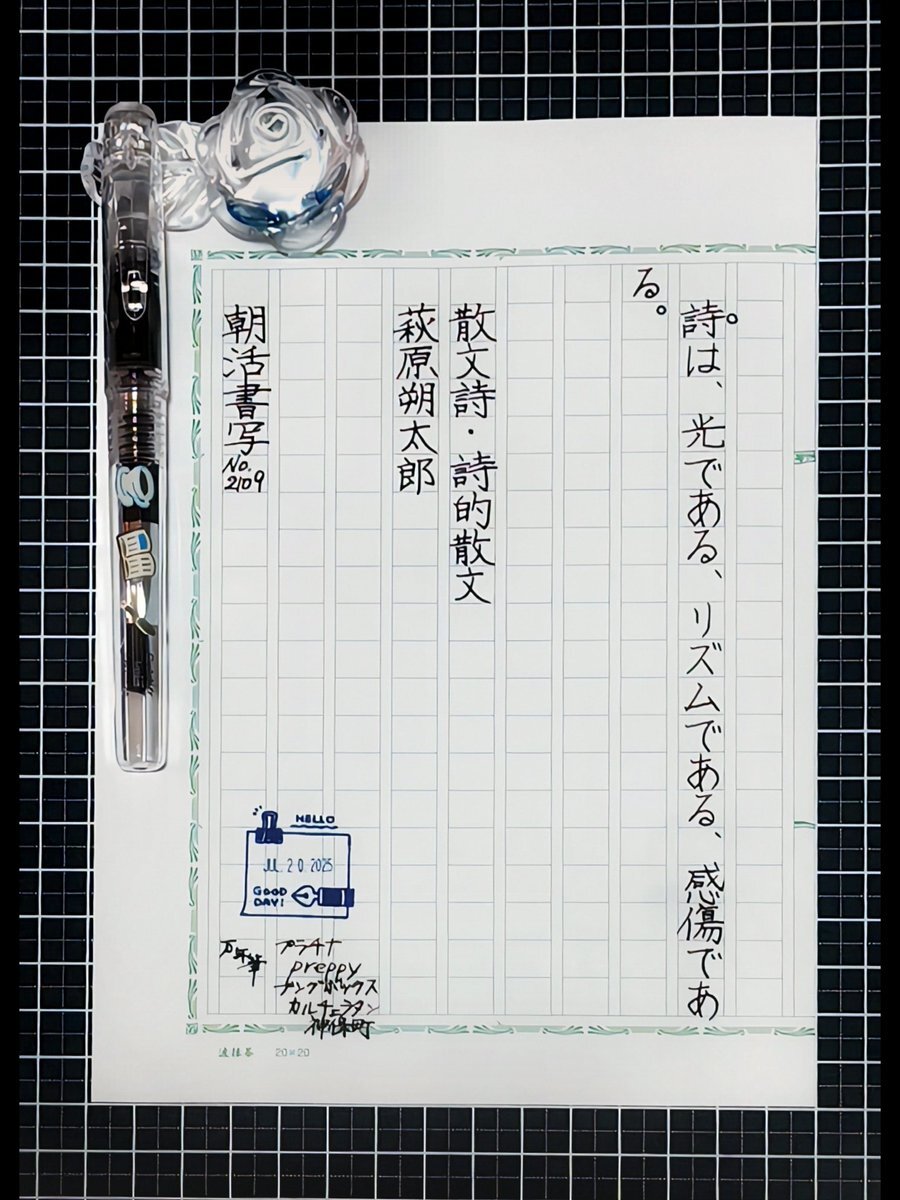 詩は、光である、リズムである、感傷であ
る。
散文詩・詩的散文
萩原朔太郎
朝活書写
No.
2109
HELLO
JUL 20 2025
GOOD
DAY!
万年筆
プラチナ
preppy
カルチェラタン
神保町
20×20